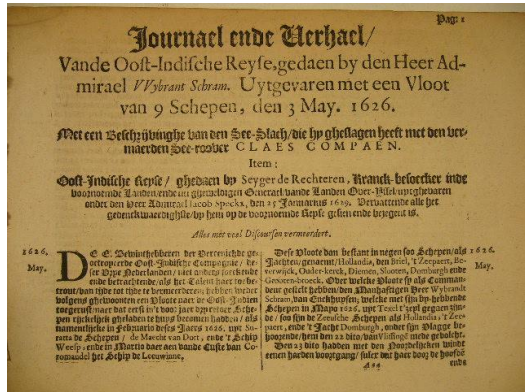 Pag: 1
Journael ende Verhael/
Vande Oost-Indische Reyse, gedaen by den Heer Ad-
mirael VVybrant Schram. Uytgevaren met een Vloot
van 9 Schepen, den 3 May. 1626.
Met een Beschrijvinghe van den See-Slach/die hy gheslagen heeft met den ver-
maerden See-roover CLAES COMPAEN.
Item;
Oost-Indische Reyse/ ghedaen by Seyger de Rechteren, Kranck-besoecker inde
voornoemde Landen/ende nu Generael vande Landen Over-Yssel/uytghevaren
onder den Heer Admirael Iacob Specks, den 25 Januarius 1629. Vervattende alle het
gedenckwaerdighste/by hem op de voornoemde Reyse gesien ende bejegent is.
Alles met veel Discoursen vermeerdert.
1626.
May.
DE E. Bewinthebberen der Vereenichde ge-
octroyeerde Oost-Indische Compagnie/ de-
ser Vrye Nederlanden/ niet anders soeckende
ende betrachtende/als het Talent haer toe-be-
trout/van tijdt tot tijdt te vermeerderen; hebben
volgens ghewoonten een Vloote naer de Oost-Indien
toegerust/
pen rijckelijck gheladen te huys bekomen hadden/ als
namentlijcke in Februario deses Jaers 1626, 
de Schepen / de Maecht van Dort, ende 't Schip
Weesp; ende in Martio daer aen vande Custe van Co-
romandel het Schip de Leeuwinne,
Dese Vloote dan bestant in negen soo Schepen/als
Jachten; genaemt/Hollandia, den Briel, 't Zeepaert, Be-
verwijck, Ouder-kerck, Diemen, Slooten, Domburgh ende
Grooten-broeck. Over welcke Vloote sy als Comman-
deur gestelt hebben/den Manhaftigen Heer Wybrandt
Schram, van Enckhuysen; welcke met sijn by-hebbende
Schepen in Mayo 1626, uyt Texel t'zeyl gegaen zijn-
de/ soo zijn de Zeeusche Schepen als Hollandia, 't Zee-
paert, ende 't Jacht Domburgh, onder sijn Vlagge be-
hoorende/hem den 22 dito/van Vlissinge mede gevolcht.
Den 23 dito hadden met den Noordelijcken windt
eenen harden voortgang/ sulcx dat haer door de hoofde
1626.
May.